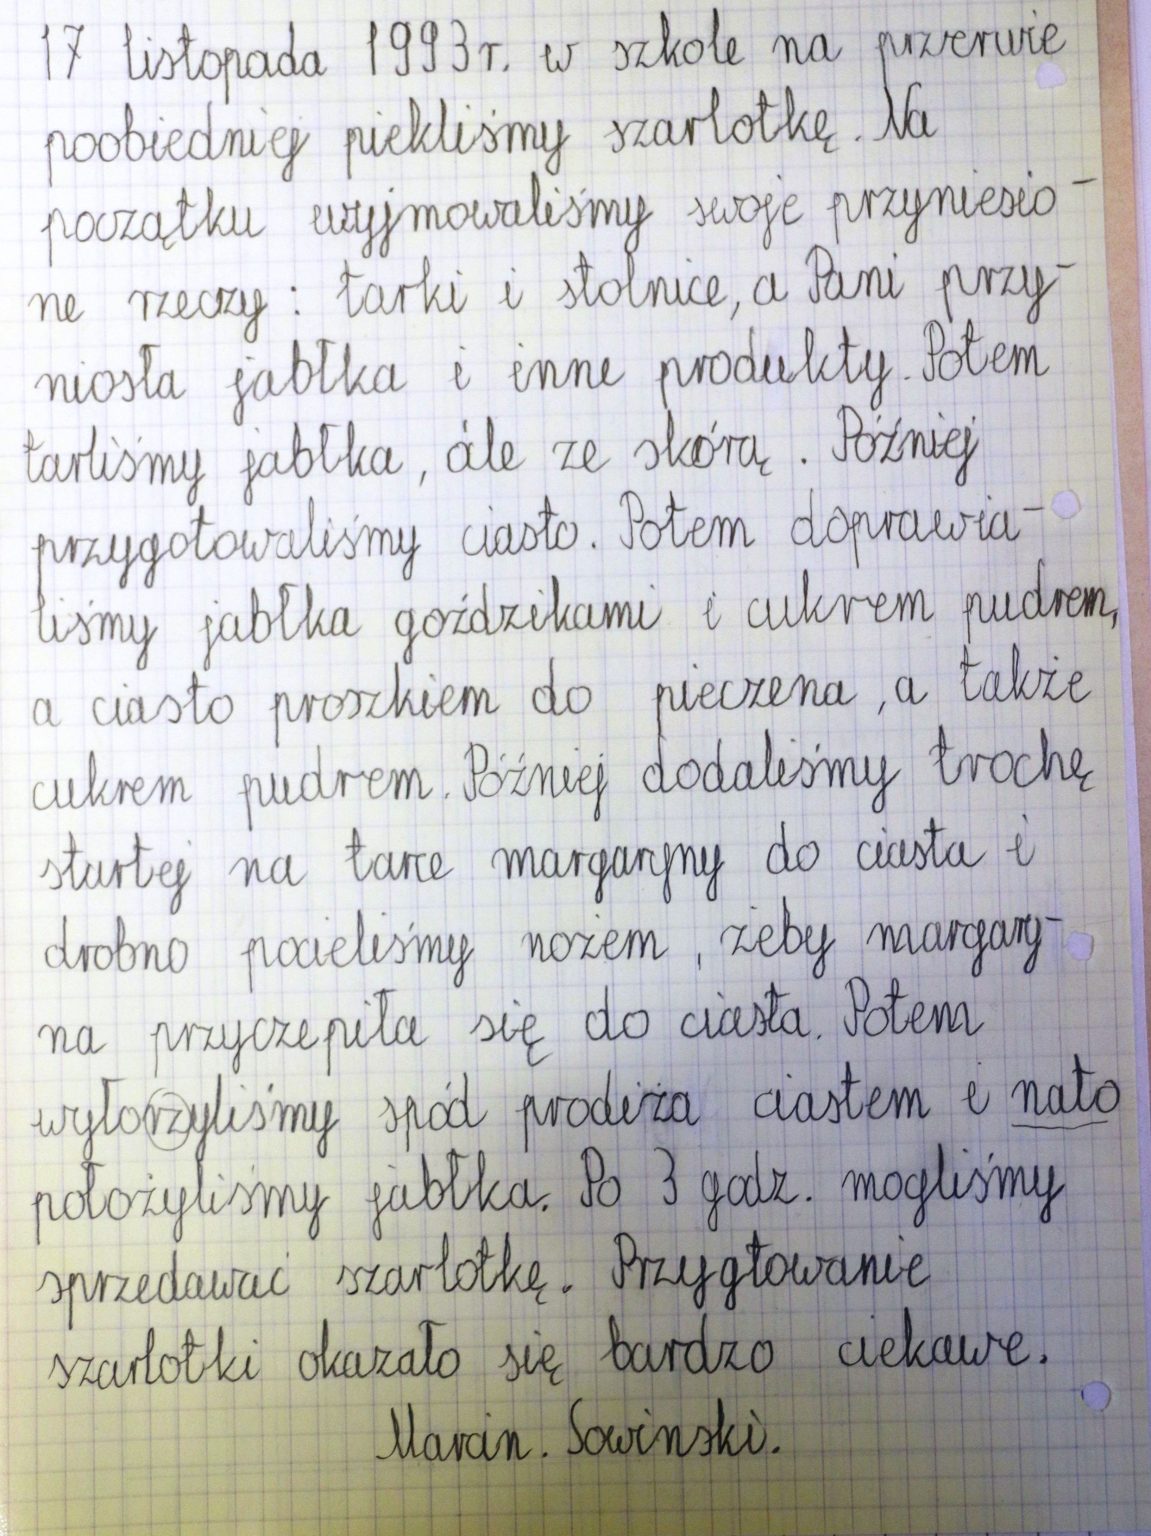 17 listopada 1993 r. w szkole na przerwie
poobiedniej piekliśmy szarlotkę. Na
początku wyjmowaliśmy swoje przyniesio-
ne rzeczy: tarki i stolnice, a Pani przy-
niosła jabłka i inne produkty. Potem
tarliśmy jabłka, ale ze skórą. Później
przygotowaliśmy ciasto. Potem doprawia-
liśmy jabłka goździkami i cukrem pudrem,
a ciasto proszkiem do pieczena, a także
cukrem pudrem. Później dodaliśmy trochę
startej na tarce margaryny do ciasta i
drobno pocieliśmy nożem, żeby margary-
na przyczepiła się do ciasta. Potem
wyłorzyliśmy spód prodiża ciastem i nato
położyliśmy jabłka. Po 3 godz. mogliśmy
sprzedawać szarlotkę. Przygtowanie
szarlotki okazało się bardzo ciekawe.
Marcin. Sowinski.